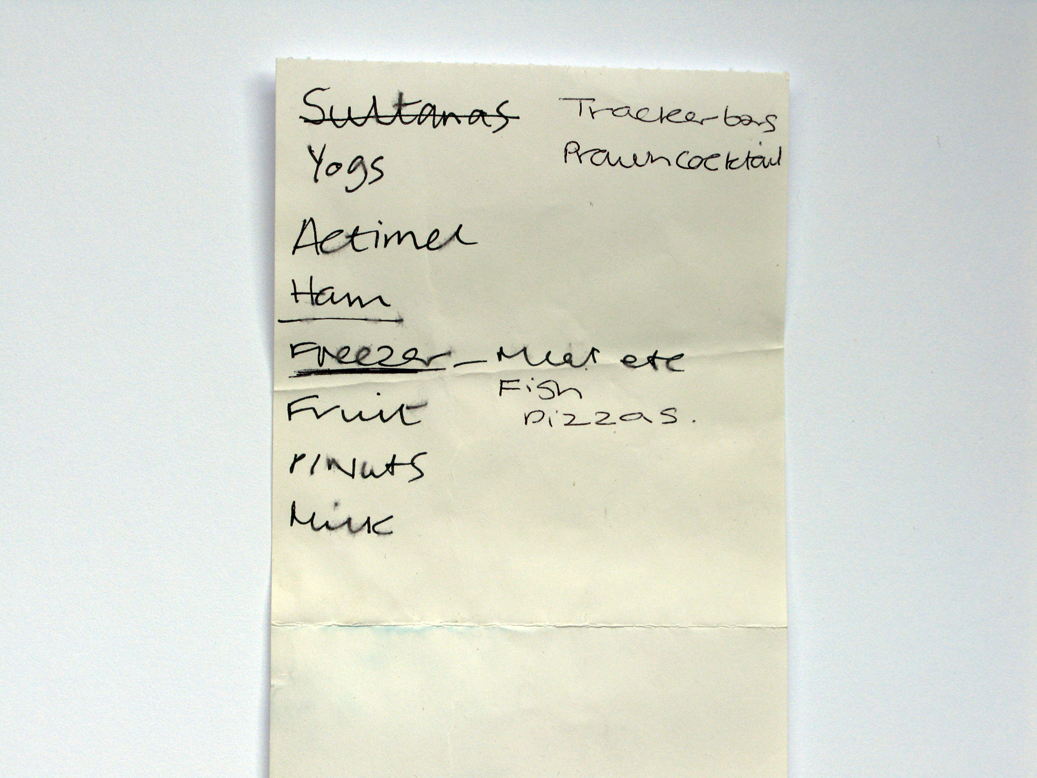 Sultanas
Yogs
Actimel
Ham
Freezer - Meat etc
Fish
Pizzas.
Fruit
P/Nuts
Milk
Tracker bars
Prawn cocktail